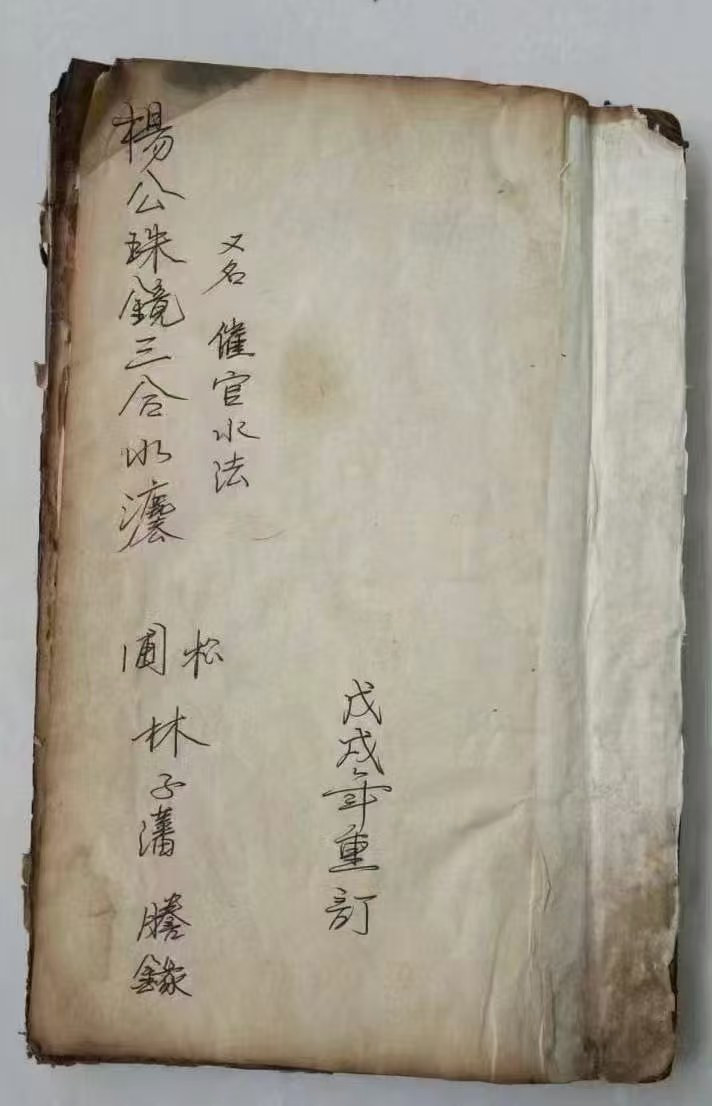 戊戌年重訂
又名 催官水法
楊公珠鏡三合水灋
松圃
林子藩 謄錄